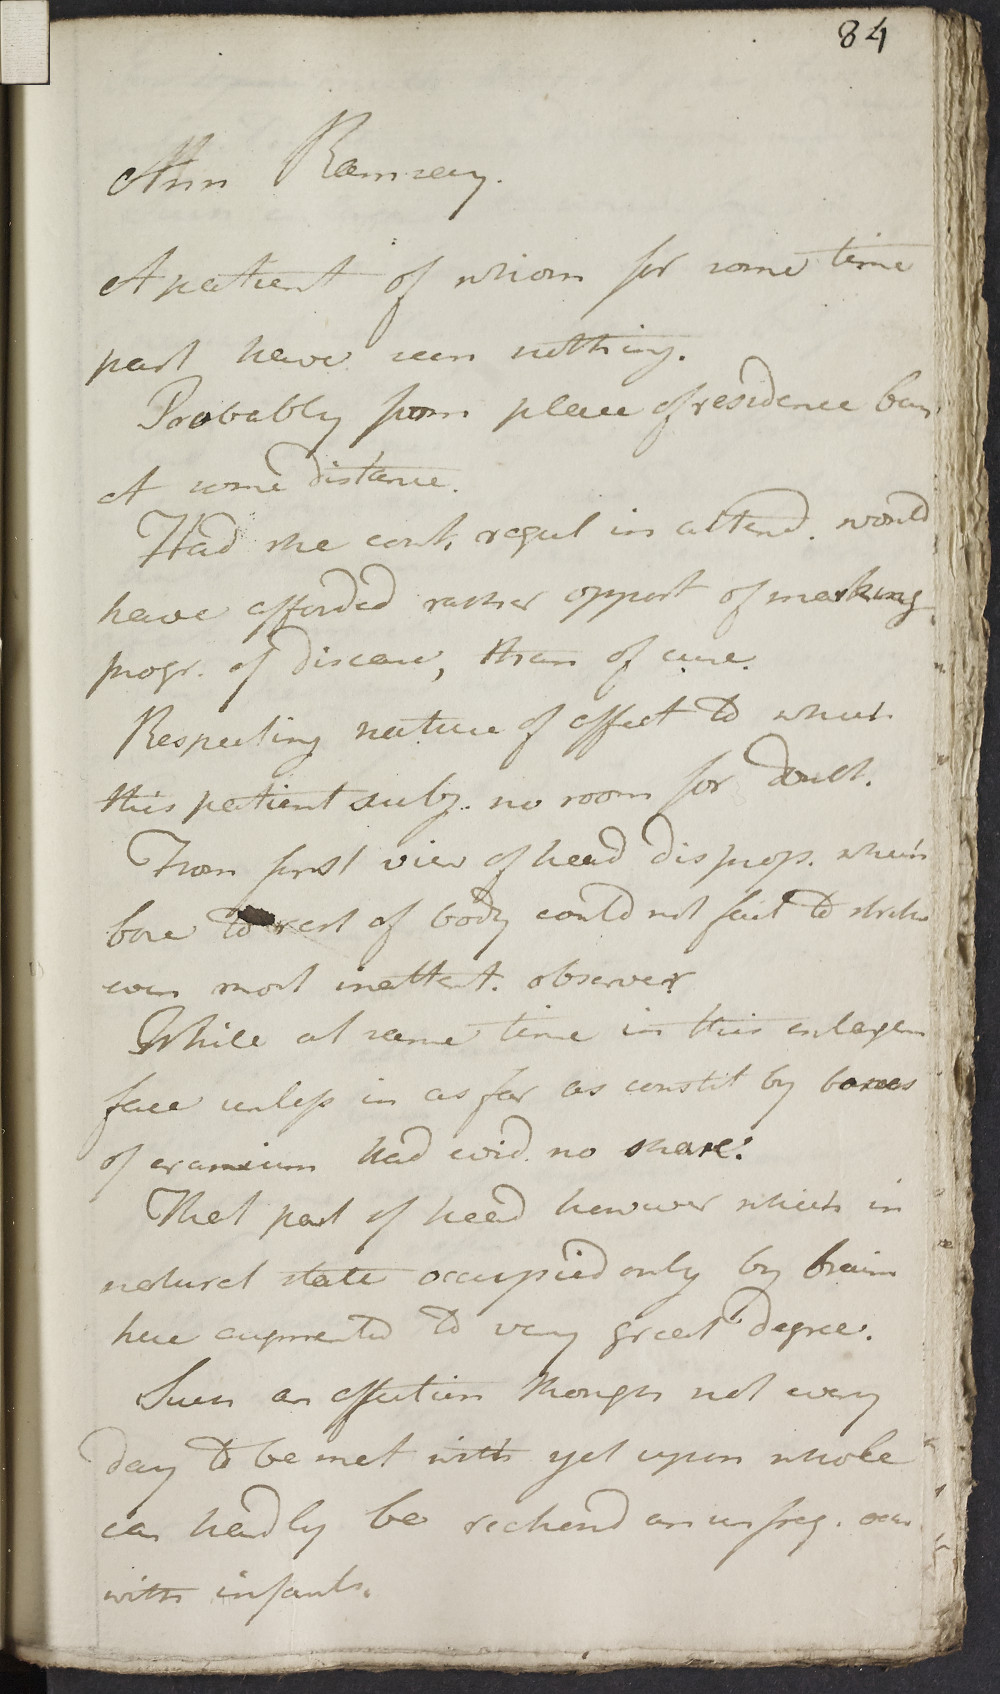 84
Ann Ramsay.
A patient of whom for some time
past have seen nothing.
Probably from place of residence
At some distance.
Had she cont. regul in attend. would
have afforded rather opport of marking
progr. of disease, than of cure.
Respecting nature of affect to which
this patient subj. no room for doubt.
From first view of head disprop. which
bore to rest of body could not fail to strike
even most inattent. observer
While at same time in this enlargem
face unless in as far as constit by bones
of cranium had evid. no share.
That part of head however which in
natural state occupied only by brain
here augmented to very great degree.
Such an affection though not every
day to be met with yet upon whole
can hardly be reckond an unfreq. occur
with infants.